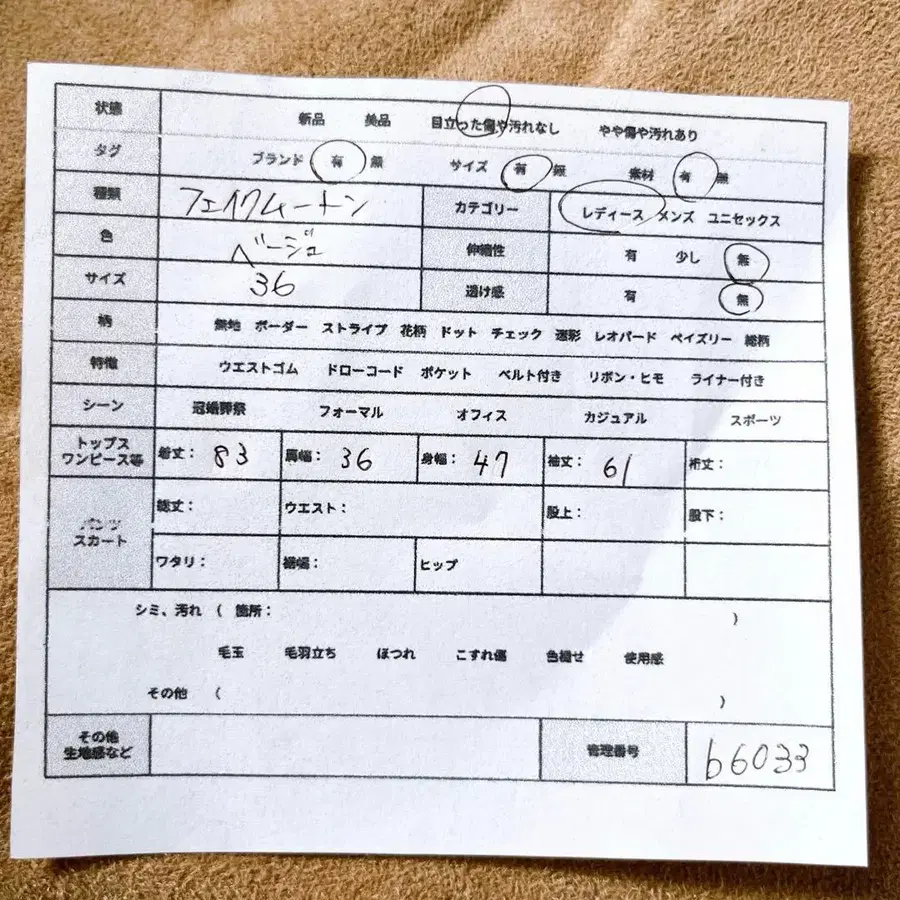 状態 新品 美品 目立った傷や汚れなし やや傷や汚れあり
タグ ブランド 有 無 サイズ 有 無 素材 有 無
種類 フェイクムートン カテゴリー レディース メンズ ユニセックス
色 ベージュ 伸縮性 有 少し 無
サイズ 36 透け感 有 無
柄 無地 ボーダー ストライプ 花柄 ドット チェック 迷彩 レオパード ペイズリー 総柄
特徴 ウエストゴム ドローコード ポケット ベルト付き リボン・ヒモ ライナー付き
シーン 冠婚葬祭 フォーマル オフィス カジュアル スポーツ
トップス
ワンピース等 着丈: 83 肩幅: 36 身幅: 47 袖丈: 61 裄丈:
パンツ
スカート
総丈: ウエスト: 股上: 股下:
ワタリ: 裾幅: ヒップ
シミ、汚れ ( 箇所: )
毛玉 毛羽立ち ほつれ こすれ傷 色褪せ 使用感
その他 ( )
その他
生地感など 管理番号 b6033